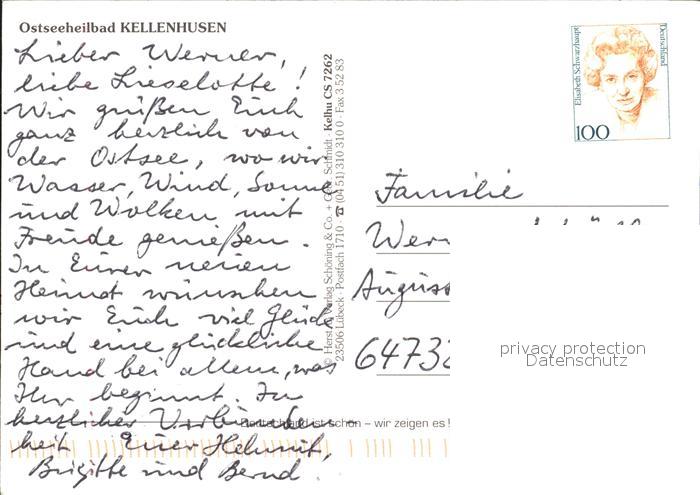 Ostseeheilbad KELLENHUSEN
Lieber Werner,
liebe Lieselotte!
Wir grüßen Euch
ganz herzlich von
der Ostsee, wo wir
Wasser, Wind, Sonne
und Wolken mit
Freude genießen.
In Eurer neuen
Heimat wünschen
wir Euch viel Glück
und eine glückliche
Hand bei allem, was
Ihr beginnt. In
herzlicher Verbunden
heit, Euer Helmut,
Brigitte und Bernd.
© Herst. + Verlag Schöning & Co. + Schmidt · Kelhu CS 7262
23506 Lübeck · Postfach 1710 · ☎ (04 51) 310 310 0 · Fax 3 52 83
Deutschland ist schön – wir zeigen es!
Elisabeth Schwarzhaupt
Deutschland
100
Familie
Wer
Augus
6473
privacy protection
Datenschutz